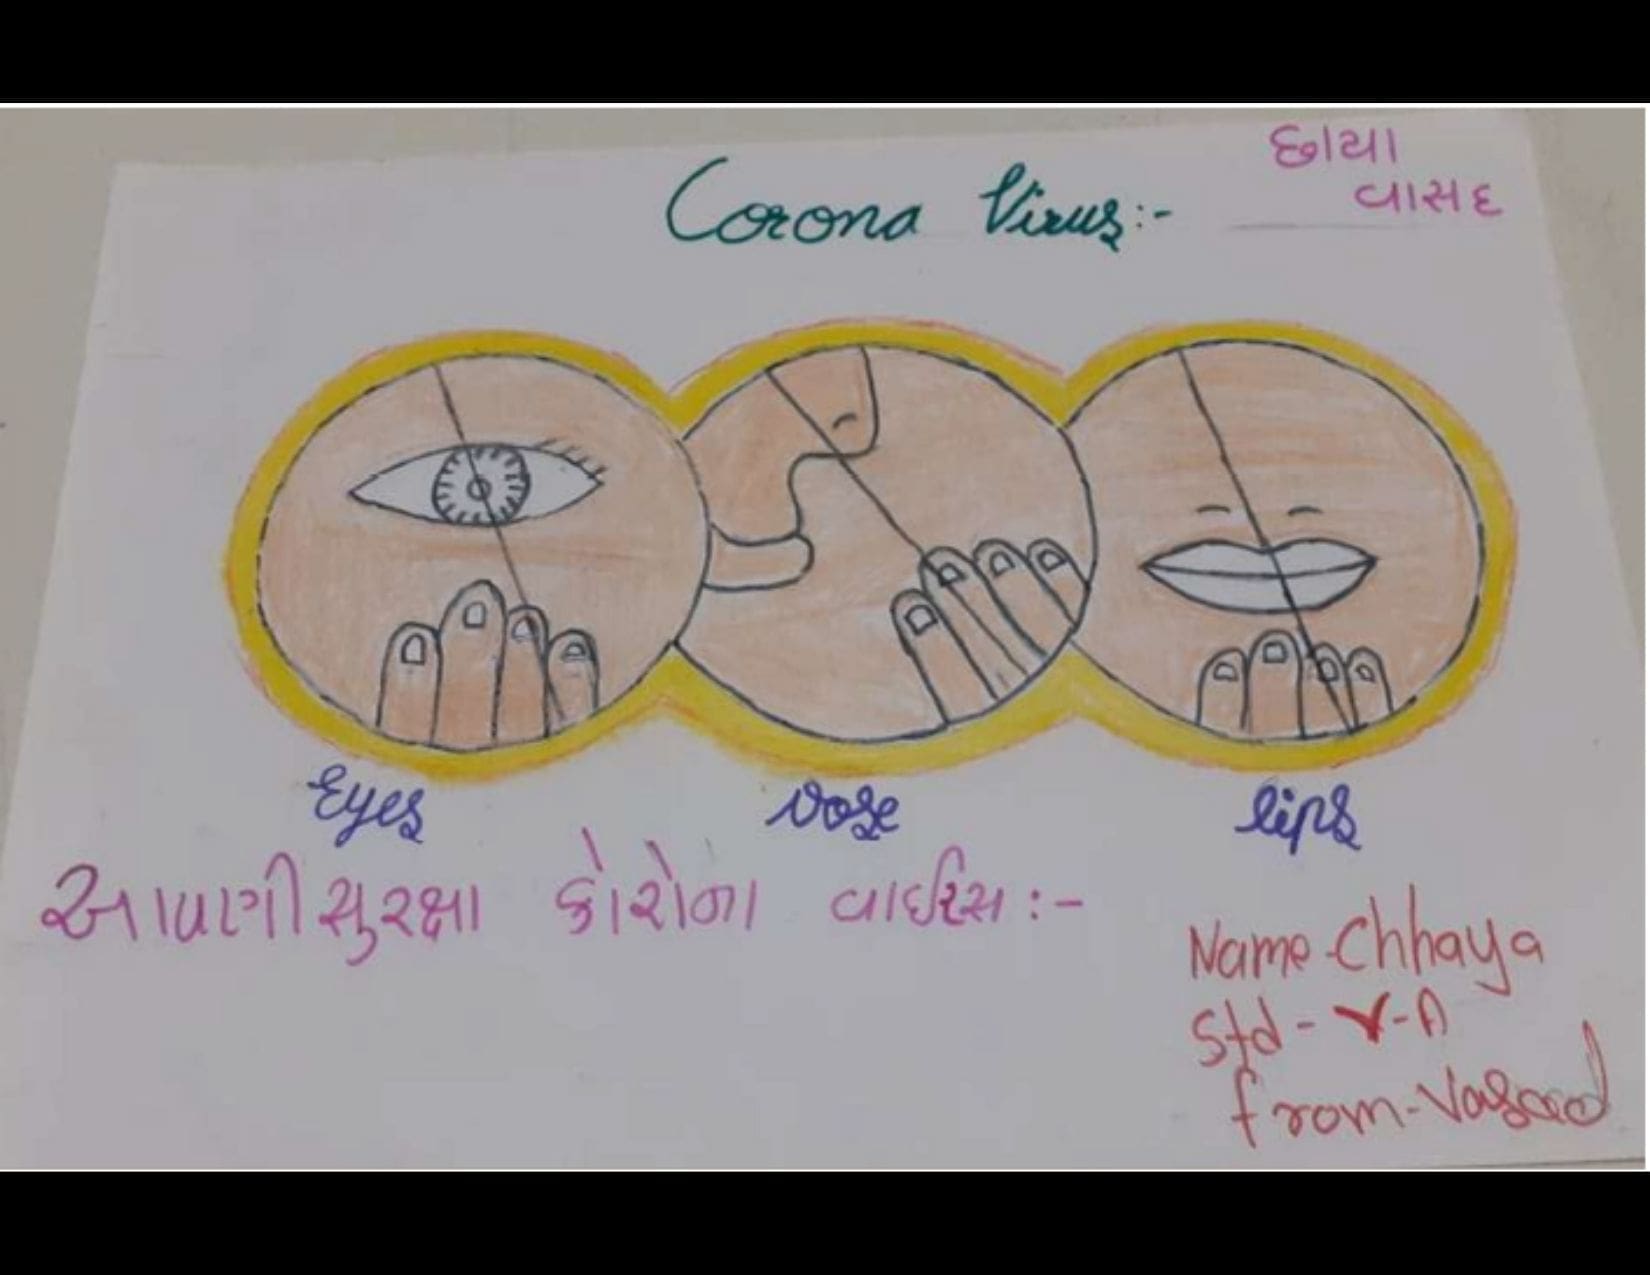 છાયા
વાસદ
Corona Virus:-
Eyes
Nose
lips
આપણી સુરક્ષા કોરોના વાઈરસ :-
Name-Chhaya
Std - V-A
from-Vasad